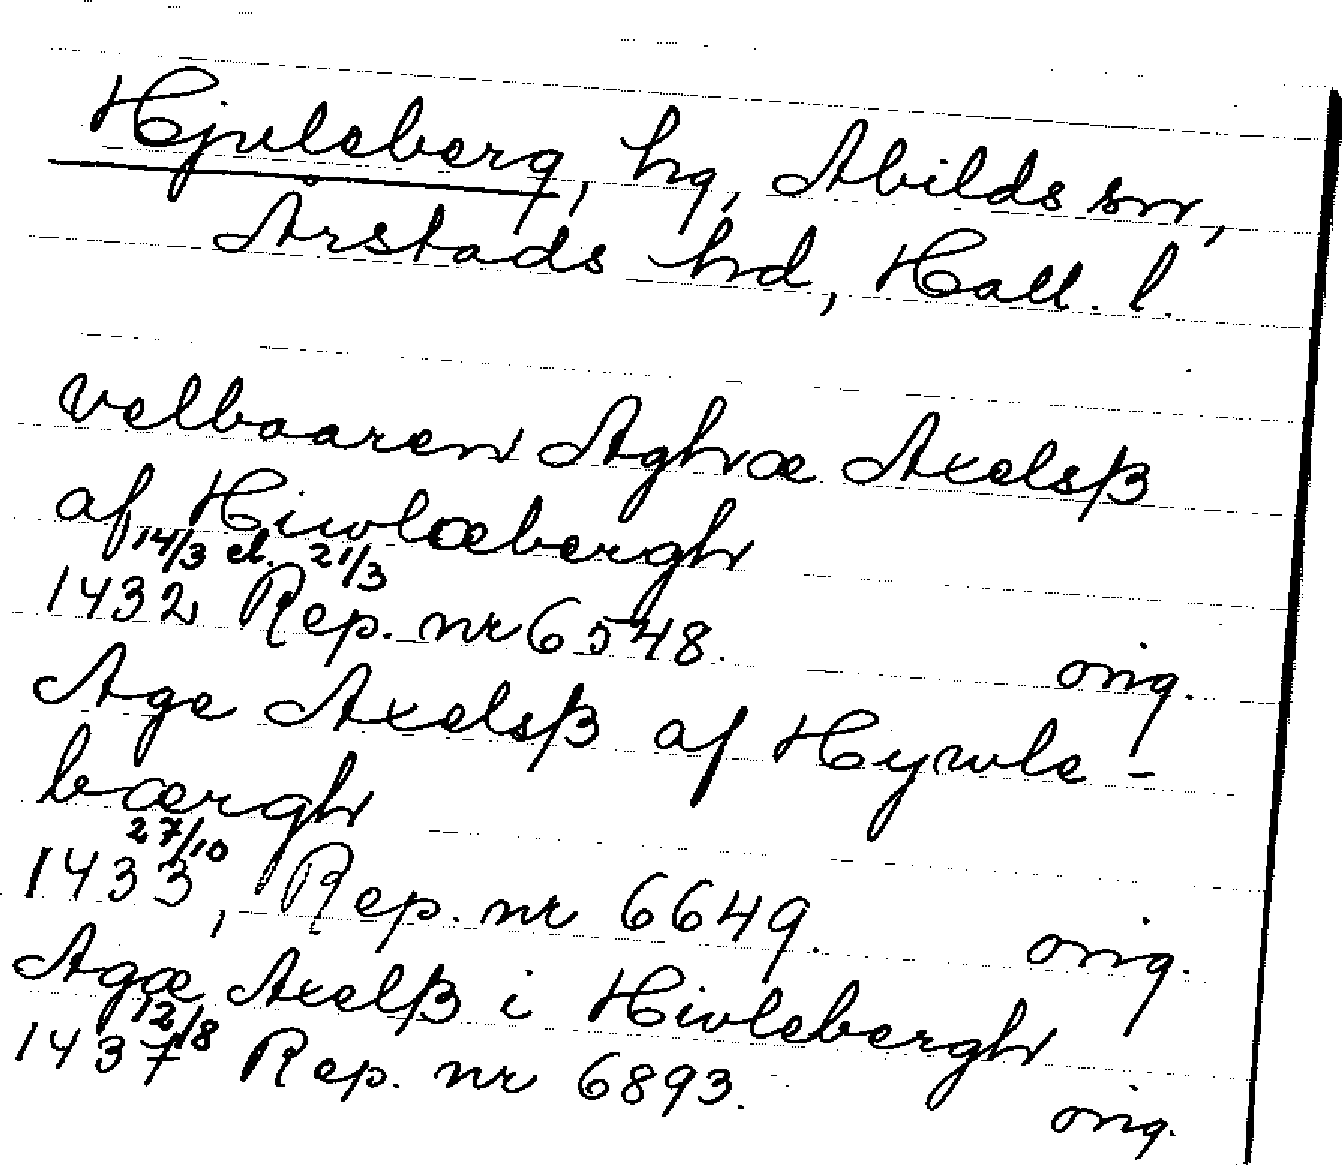 Hjuleberg, hg, Abilds sn,
Årstads hd, Hall. l.
velbaaren Aghæ Axelsß
af Hiwlæbergh
14/3 el. 21/3
1432 Rep. nr 6548. orig.
Age Axelsß af Hywle-
bærgh
27/10
1433, Rep. nr 6649. orig.
Agæ Axelß i Hiwlebergh
12/8
1437 Rep. nr 6893. orig.